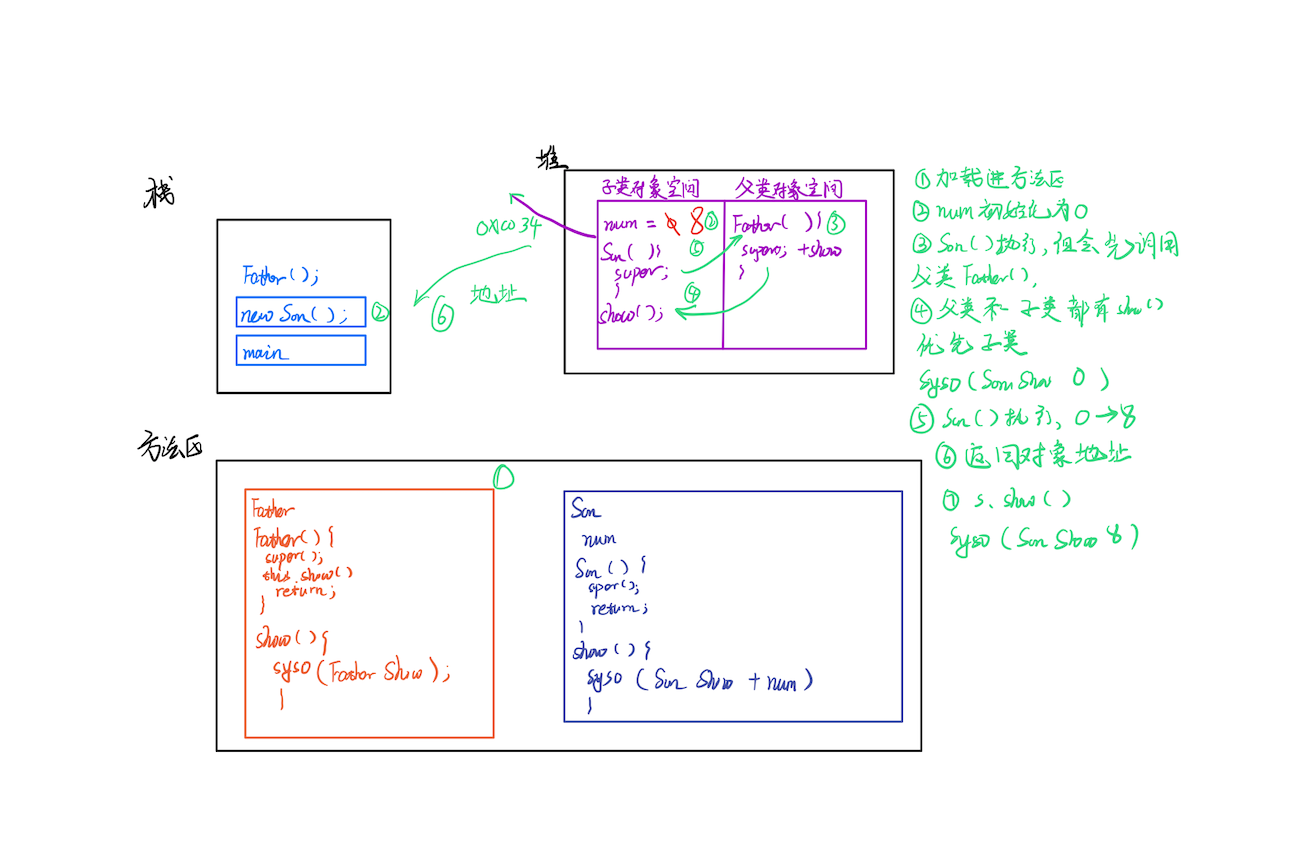 栈
Father();
new Son(); ②
main
0x0034
地址
⑥
堆
子类对象空间 父类对象空间
num = 0 8 ②
Son(){ ⑤
super;
}
show(); ④
Father(){ ③
super; +show
}
① 加载进方法区
② num初始化为0
③ Son()执行,但会先调用
父类Father(),
④ 父类和子类都有show()
优先子类
syso(Son Show 0)
⑤ Son()执行, 0→8
⑥ 返回对象地址
⑦ s.show()
syso(Son Show 8)
方法区
①
Father
Father(){
super();
this.show()
return;
}
show(){
syso(Father Show);
}
Son
num
Son(){
sper();
return;
}
show(){
syso(Son Show + num)
}